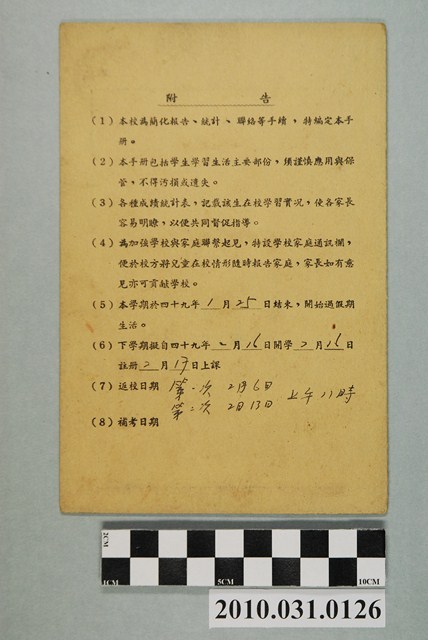 附　　　　告
（1）本校為簡化報告、統計、聯絡等手續，特編定本手
冊。
（2）本手冊包括學生學習生活主要部份，須謹慎應用與保
管，不得污損或遺失。
（3）各種成績統計表，記載該生在校學習實況，使各家長
容易明瞭，以便共同督促指導。
（4）為加強學校與家庭聯繫起見，特設學校家庭通訊欄，
便於校方將兒童在校情形隨時報告家庭，家長如有意
見亦可貢献學校。
（5）本學期於四十九年 1 月 25 日結束，開始過假期
生活。
（6）下學期擬自四十九年 2 月 16 日開學 2 月 16 日
註册 2 月 17 日上課
（7）返校日期 第一次 2月6日 上午八時
第二次 2日13日
（8）補考日期
2CM
1CM 5CM 10CM
2010.031.0126